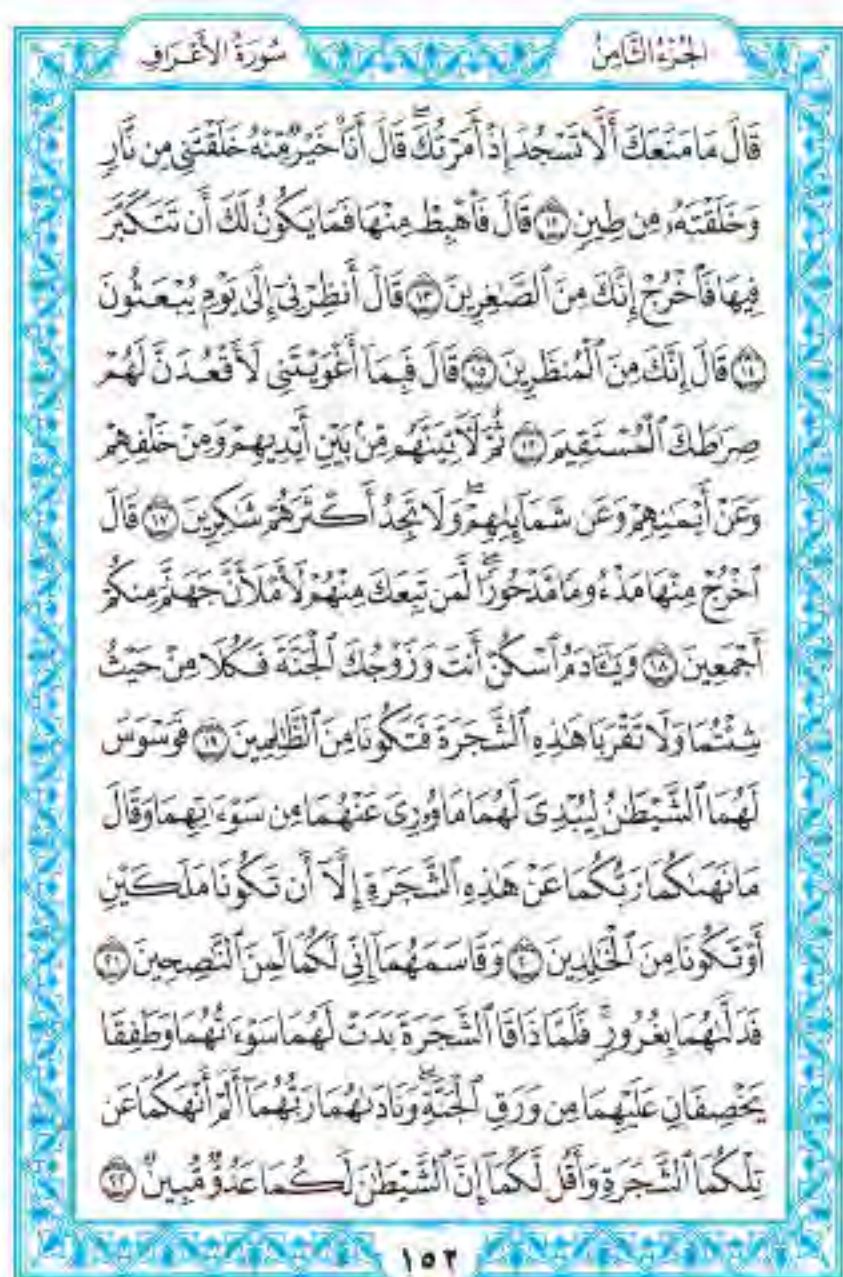 الجُزْءُ الثَّامِنُ
سُورَةُ الأَعْرَافِ
قَالَ مَا مَنَعَكَ أَلَّا تَسْجُدَ إِذْ أَمَرْتُكَ ۖ قَالَ أَنَا۠ خَيْرٌ مِّنْهُ خَلَقْتَنِى مِن نَّارٍ
وَخَلَقْتَهُۥ مِن طِينٍ ١٢ قَالَ فَٱهْبِطْ مِنْهَا فَمَا يَكُونُ لَكَ أَن تَتَكَبَّرَ
فِيهَا فَٱخْرُجْ إِنَّكَ مِنَ ٱلصَّٰغِرِينَ ١٣ قَالَ أَنظِرْنِىٓ إِلَىٰ يَوْمِ يُبْعَثُونَ
١٤ قَالَ إِنَّكَ مِنَ ٱلْمُنظَرِينَ ١٥ قَالَ فَبِمَآ أَغْوَيْتَنِى لَأَقْعُدَنَّ لَهُمْ
صِرَٰطَكَ ٱلْمُسْتَقِيمَ ١٦ ثُمَّ لَـَٔاتِيَنَّهُم مِّنۢ بَيْنِ أَيْدِيهِمْ وَمِنْ خَلْفِهِمْ
وَعَنْ أَيْمَٰنِهِمْ وَعَن شَمَآئِلِهِمْ ۖ وَلَا تَجِدُ أَكْثَرَهُمْ شَٰكِرِينَ ١٧ قَالَ
ٱخْرُجْ مِنْهَا مَذْءُومًا مَّدْحُورًا ۖ لَّمَن تَبِعَكَ مِنْهُمْ لَأَمْلَأَنَّ جَهَنَّمَ مِنكُمْ
أَجْمَعِينَ ١٨ وَيَٰٓـَٔادَمُ ٱسْكُنْ أَنتَ وَزَوْجُكَ ٱلْجَنَّةَ فَكُلَا مِنْ حَيْثُ
شِئْتُمَا وَلَا تَقْرَبَا هَٰذِهِ ٱلشَّجَرَةَ فَتَكُونَا مِنَ ٱلظَّٰلِمِينَ ١٩ فَوَسْوَسَ
لَهُمَا ٱلشَّيْطَٰنُ لِيُبْدِىَ لَهُمَا مَا وُۥرِىَ عَنْهُمَا مِن سَوْءَٰتِهِمَا وَقَالَ
مَا نَهَىٰكُمَا رَبُّكُمَا عَنْ هَٰذِهِ ٱلشَّجَرَةِ إِلَّآ أَن تَكُونَا مَلَكَيْنِ
أَوْ تَكُونَا مِنَ ٱلْخَٰلِدِينَ ٢٠ وَقَاسَمَهُمَآ إِنِّى لَكُمَا لَمِنَ ٱلنَّٰصِحِينَ ٢١
فَدَلَّىٰهُمَا بِغُرُورٍ ۚ فَلَمَّا ذَاقَا ٱلشَّجَرَةَ بَدَتْ لَهُمَا سَوْءَٰتُهُمَا وَطَفِقَا
يَخْصِفَانِ عَلَيْهِمَا مِن وَرَقِ ٱلْجَنَّةِ ۖ وَنَادَىٰهُمَا رَبُّهُمَآ أَلَمْ أَنْهَكُمَا عَن
تِلْكُمَا ٱلشَّجَرَةِ وَأَقُل لَّكُمَآ إِنَّ ٱلشَّيْطَٰنَ لَكُمَا عَدُوٌّ مُّبِينٌ ٢٢
١٥٢